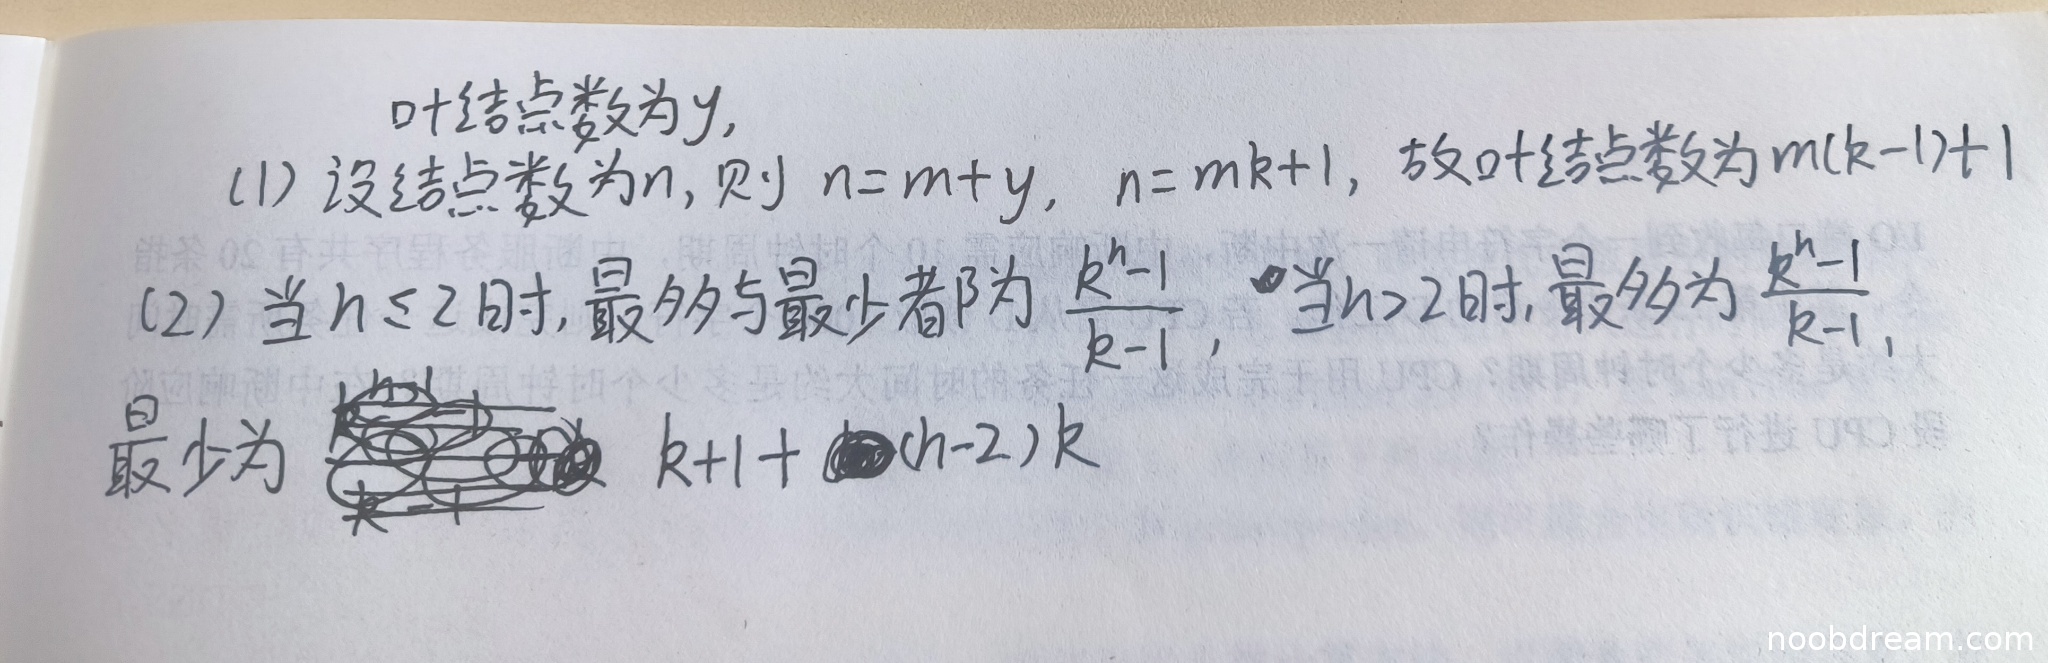 叶结点数为y,
(1) 设结点数为n, 则 n=m+y, n=mk+1, 故叶结点数为m(k-1)+1
(2) 当h≤2时, 最多与最少都为 \frac{k^h-1}{k-1}, 当h>2时, 最多为 \frac{k^h-1}{k-1},
最少为 k+1+(h-2)k
noobdream.com